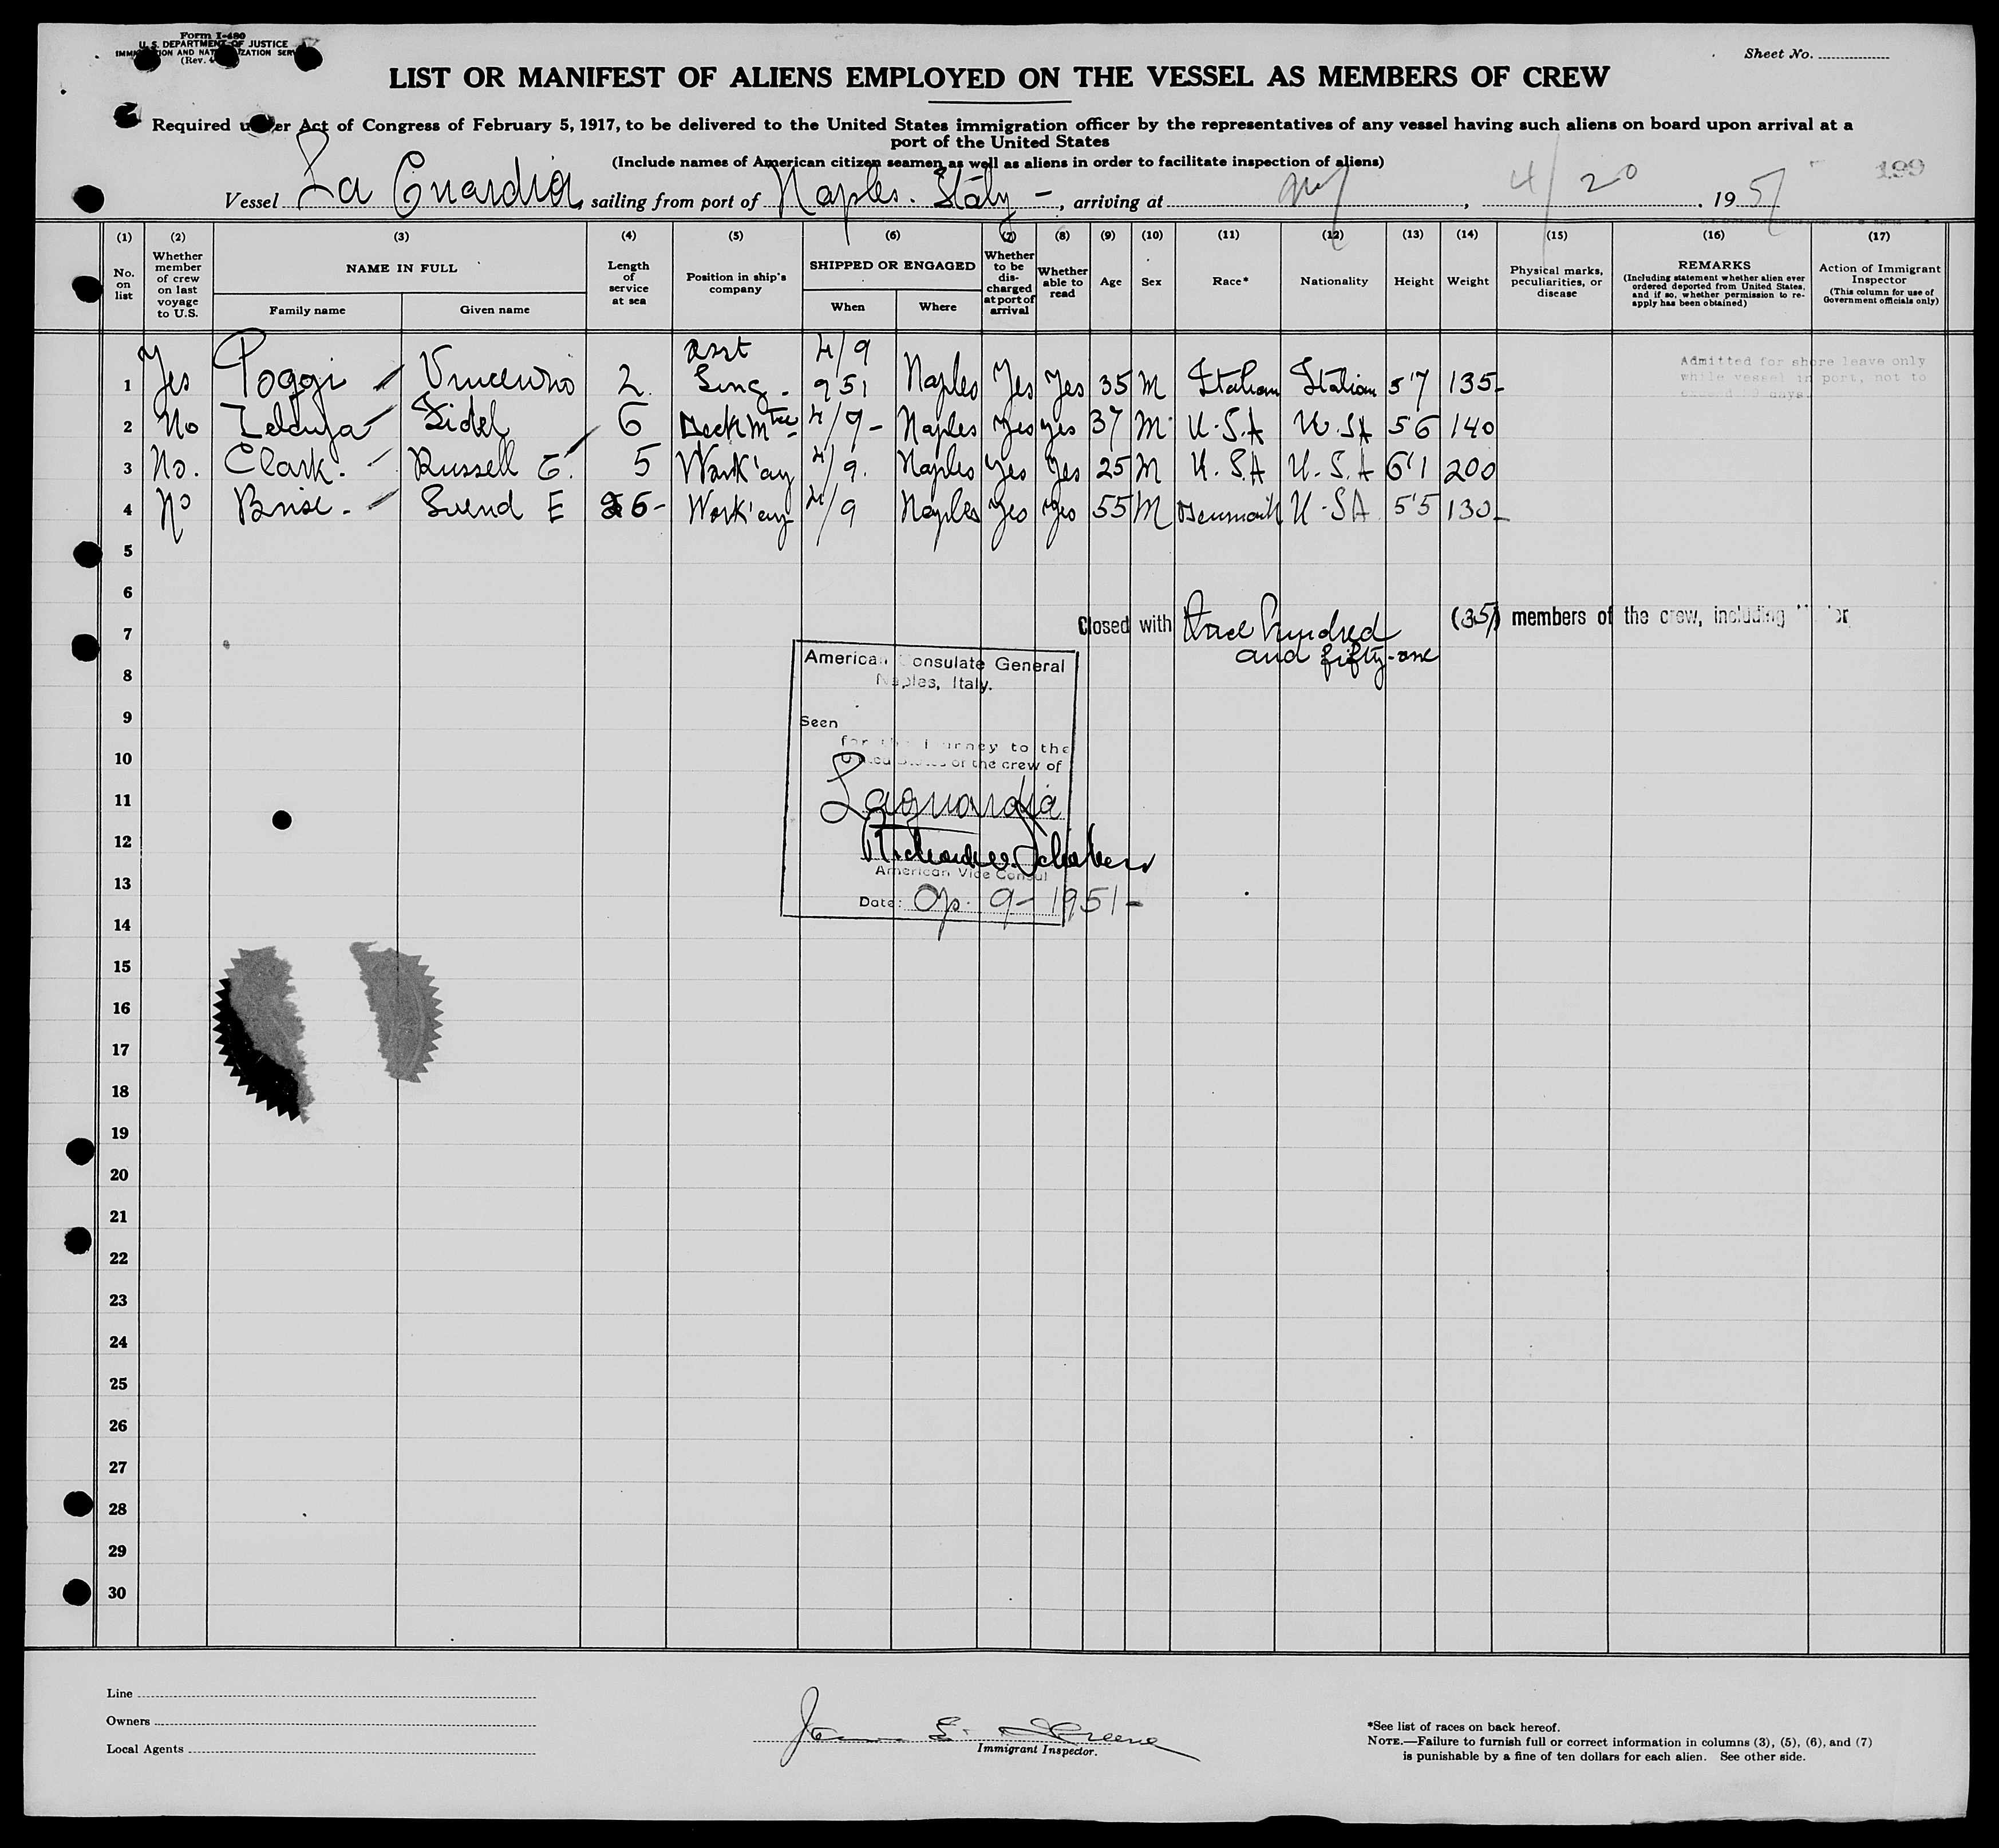 Form I-480
U. S. DEPARTMENT OF JUSTICE
IMMIGRATION AND NATURALIZATION SERV
(Rev. 4
Sheet No.
LIST OR MANIFEST OF ALIENS EMPLOYED ON THE VESSEL AS MEMBERS OF CREW
Required under Act of Congress of February 5, 1917, to be delivered to the United States immigration officer by the representatives of any vessel having such aliens on board upon arrival at a
port of the United States
(Include names of American citizen seamen as well as aliens in order to facilitate inspection of aliens)
199
Vessel La Guardia, sailing from port of Naples. Italy -, arriving at NY, 4/20. 1951
(1) (2) (3) (4) (5) (6) (7) (8) (9) (10) (11) (12) (13) (14) (15) (16) (17)
No. on list
Whether member of crew on last voyage to U.S.
NAME IN FULL
Family name
Given name
Length of service at sea
Position in ship's company
SHIPPED OR ENGAGED
When
Where
Whether to be discharged at port of arrival
Whether able to read
Age
Sex
Race*
Nationality
Height
Weight
Physical marks, peculiarities, or disease
REMARKS
(Including statement whether alien ever ordered deported from United States, and if so, whether permission to re-apply has been obtained)
Action of Immigrant Inspector
(This column for use of Government officials only)
1 Yes Poggi Vincenzo 2 asst Eng. 4/9 951 Naples Yes Yes 35 M Italian Italian 5'7 135-
Admitted for shore leave only
while vessel in port, not to
exceed 29 days.
2 No Fidel 6 Deck Mtce 4/9- Naples Yes Yes 37 M U.S.A U.SA 56 140
3 No. Clark. Russell E. 5 Work'ay 4/9. Naples Yes Yes 25 M U.SA U.S.A 6'1 200
4 No Brise. Svend E 6- Work'ay 4/9 Naples Yes Yes 55 M Denmark U.SA 5'5 130-
5
6
Closed with three hundred and fifty-one (351) members of the crew, including
7
8
American Consulate General
Naples, Italy.
9
Seen
for the journey to the
United States of the crew of
10
11
Laguardia
12
13
American Vice Consul
Date: Ap. 9-1951-
14
15
16
17
18
19
20
21
22
23
24
25
26
27
28
29
30
Line
Owners
Local Agents
Immigrant Inspector.
*See list of races on back hereof.
NOTE.—Failure to furnish full or correct information in columns (3), (5), (6), and (7)
is punishable by a fine of ten dollars for each alien. See other side.